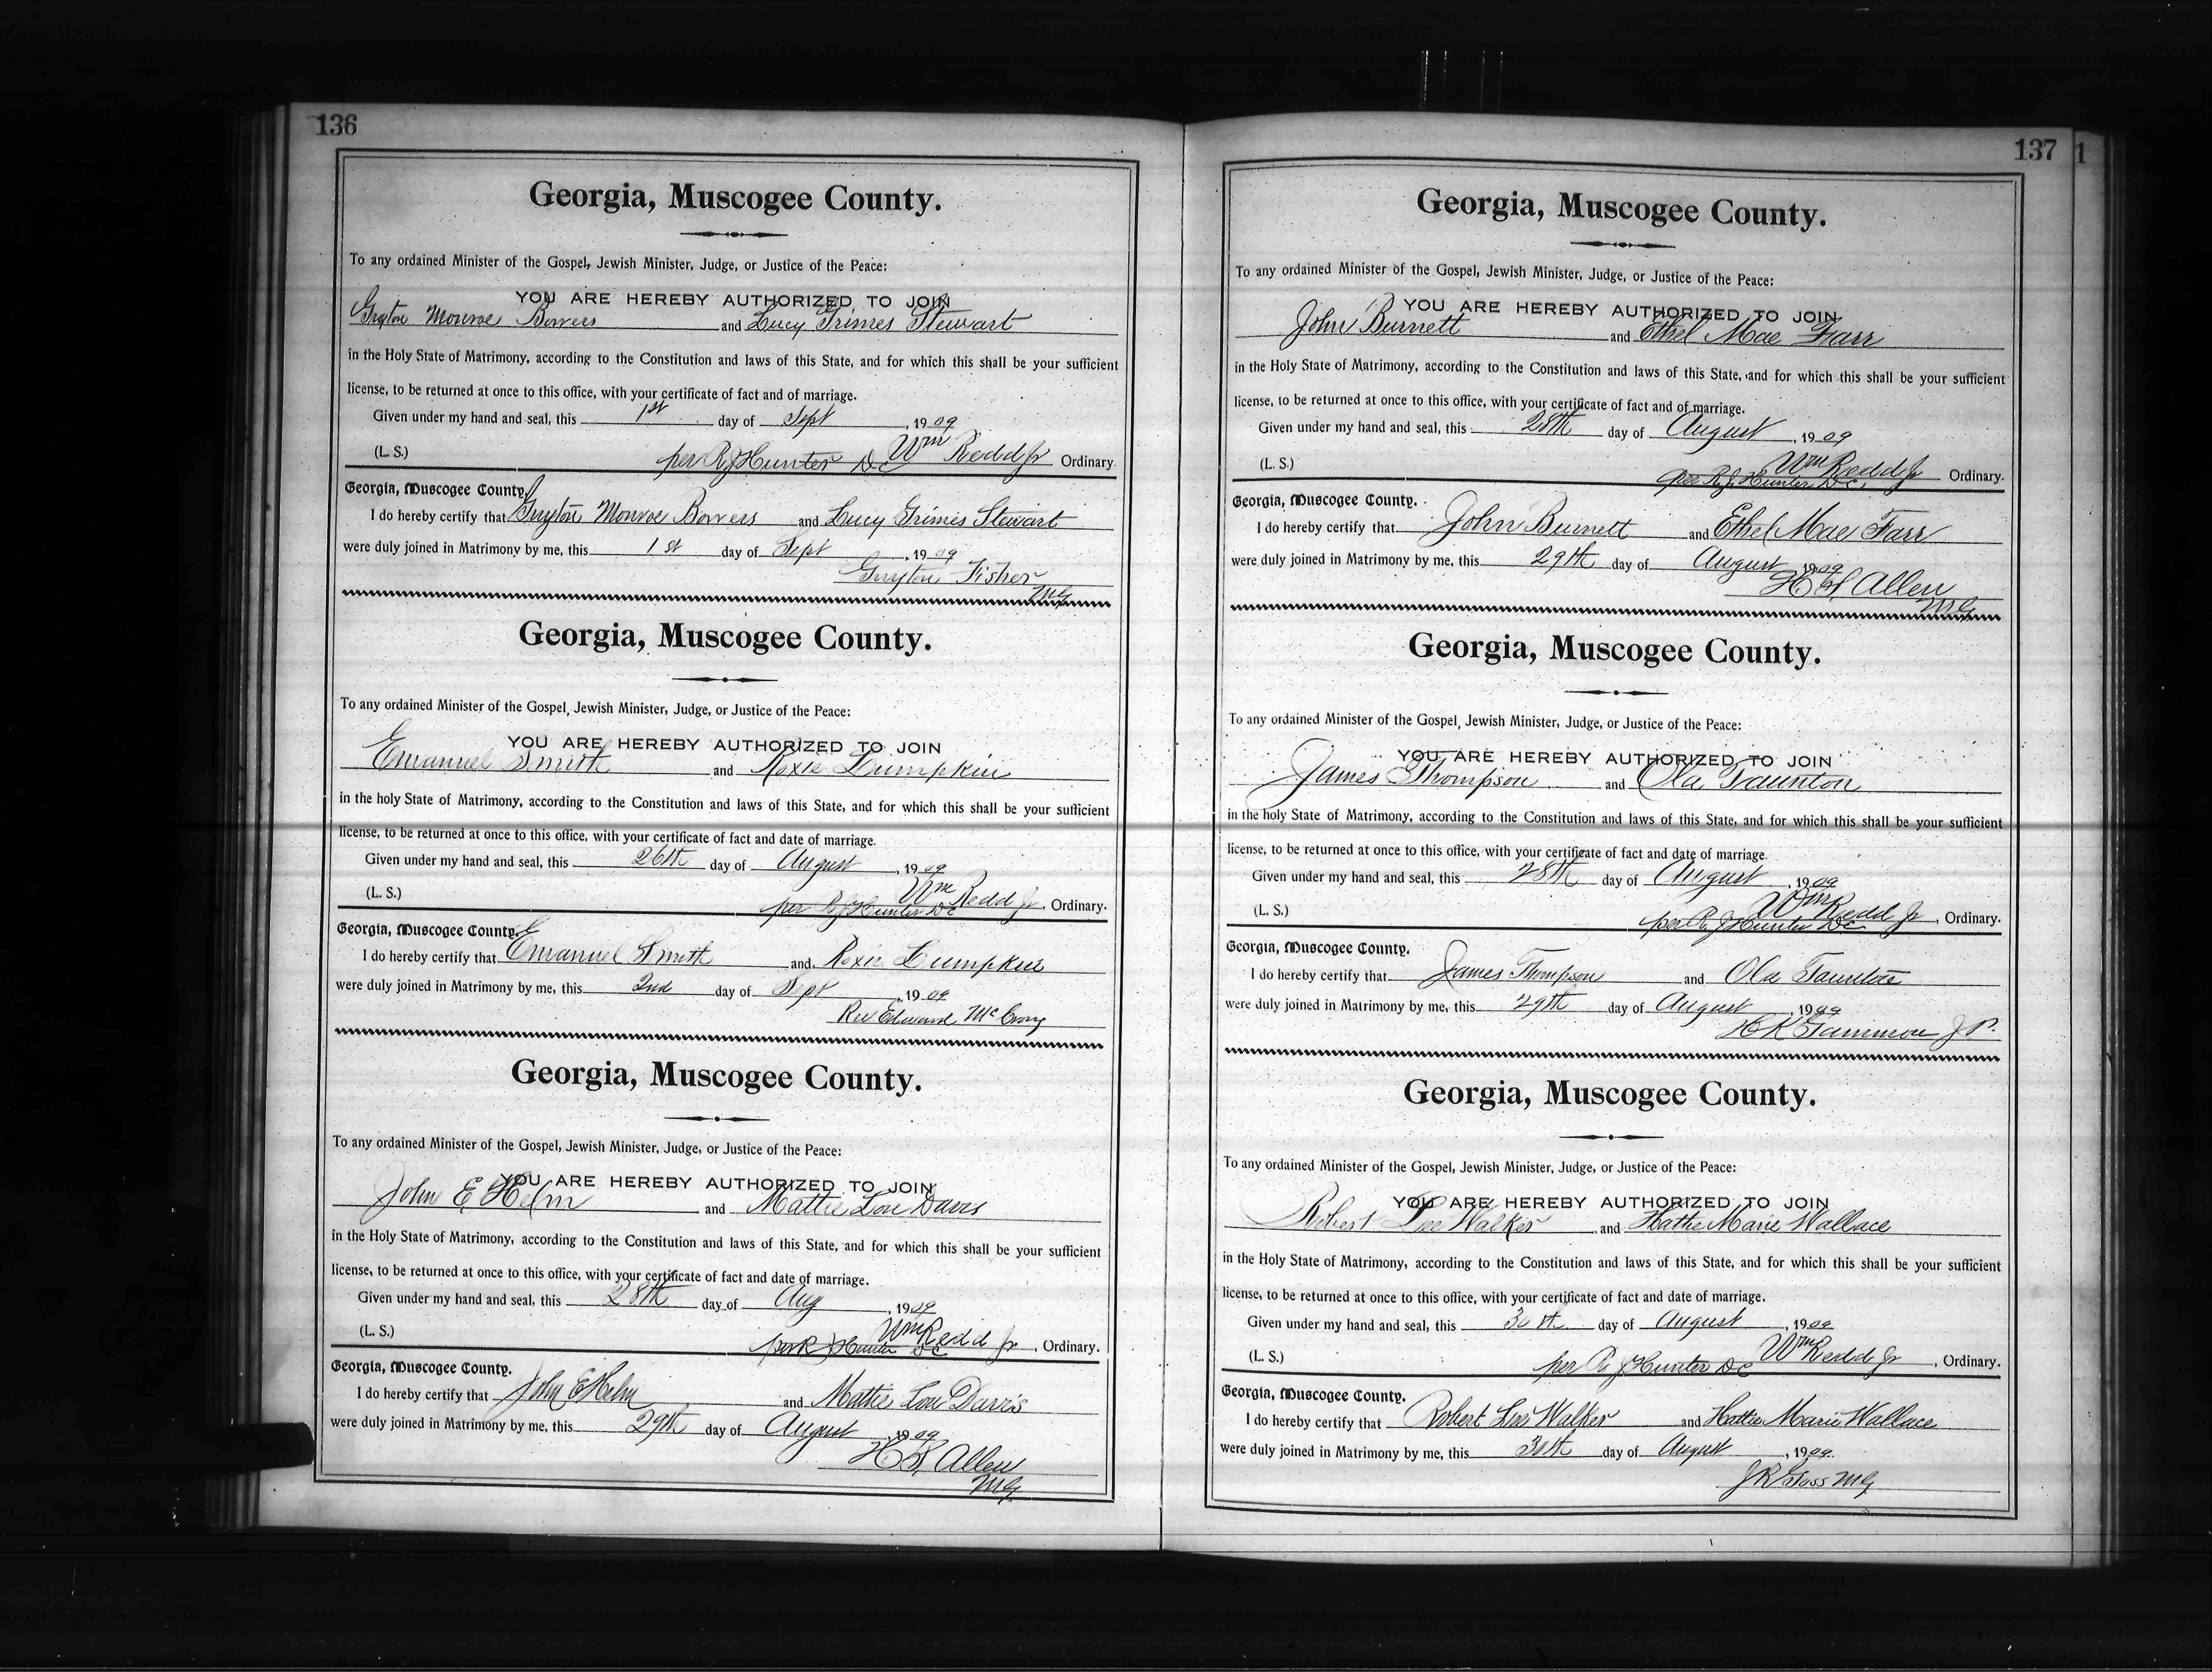 136
Georgia, Muscogee County.
To any ordained Minister of the Gospel, Jewish Minister, Judge, or Justice of the Peace:
YOU ARE HEREBY AUTHORIZED TO JOIN
Guyton Monroe Bowers and Lucy Grimes Stewart
in the Holy State of Matrimony, according to the Constitution and laws of this State, and for which this shall be your sufficient
license, to be returned at once to this office, with your certificate of fact and of marriage.
Given under my hand and seal, this 1st day of Sept, 1909
(L. S.) per R J Hunter DC Wm Redd Jr Ordinary.
Georgia, Muscogee County.
I do hereby certify that Guyton Monroe Bowers and Lucy Grimes Stewart
were duly joined in Matrimony by me, this 1st day of Sept, 1909
Guyton Fisher
MG
Georgia, Muscogee County.
To any ordained Minister of the Gospel, Jewish Minister, Judge, or Justice of the Peace:
YOU ARE HEREBY AUTHORIZED TO JOIN
Emanuel Smith and Roxie Lumpkin
in the holy State of Matrimony, according to the Constitution and laws of this State, and for which this shall be your sufficient
license, to be returned at once to this office, with your certificate of fact and date of marriage.
Given under my hand and seal, this 26th day of August, 1909
(L. S.) per R J Hunter DC Wm Redd Jr, Ordinary.
Georgia, Muscogee County.
I do hereby certify that Emanuel Smith and Roxie Lumpkin
were duly joined in Matrimony by me, this 2nd day of Sept, 1909
Rev Edward McCrory
Georgia, Muscogee County.
To any ordained Minister of the Gospel, Jewish Minister, Judge, or Justice of the Peace:
YOU ARE HEREBY AUTHORIZED TO JOIN
John E Helm and Mattie Lou Davis
in the Holy State of Matrimony, according to the Constitution and laws of this State, and for which this shall be your sufficient
license, to be returned at once to this office, with your certificate of fact and date of marriage.
Given under my hand and seal, this 28th day of Aug, 1909
(L. S.) per R J Hunter DC Wm Redd Jr, Ordinary.
Georgia, Muscogee County.
I do hereby certify that John E Helm and Mattie Lou Davis
were duly joined in Matrimony by me, this 29th day of August, 1909
H S Allen
MG
137
Georgia, Muscogee County.
To any ordained Minister of the Gospel, Jewish Minister, Judge, or Justice of the Peace:
YOU ARE HEREBY AUTHORIZED TO JOIN
John Burnett and Ethel Mae Farr
in the Holy State of Matrimony, according to the Constitution and laws of this State, and for which this shall be your sufficient
license, to be returned at once to this office, with your certificate of fact and of marriage.
Given under my hand and seal, this 28th day of August, 1909
(L. S.) per R J Hunter DC Wm Redd Jr Ordinary.
Georgia, Muscogee County.
I do hereby certify that John Burnett and Ethel Mae Farr
were duly joined in Matrimony by me, this 29th day of August, 1909
H S Allen
MG
Georgia, Muscogee County.
To any ordained Minister of the Gospel, Jewish Minister, Judge, or Justice of the Peace:
YOU ARE HEREBY AUTHORIZED TO JOIN
James Thompson and Ola Taunton
in the holy State of Matrimony, according to the Constitution and laws of this State, and for which this shall be your sufficient
license, to be returned at once to this office, with your certificate of fact and date of marriage.
Given under my hand and seal, this 28th day of August, 1909
(L. S.) per R J Hunter DC Wm Redd Jr, Ordinary.
Georgia, Muscogee County.
I do hereby certify that James Thompson and Ola Taunton
were duly joined in Matrimony by me, this 29th day of August, 1909
H K J P.
Georgia, Muscogee County.
To any ordained Minister of the Gospel, Jewish Minister, Judge, or Justice of the Peace:
YOU ARE HEREBY AUTHORIZED TO JOIN
Robert Lee Walker and Hattie Marie Wallace
in the Holy State of Matrimony, according to the Constitution and laws of this State, and for which this shall be your sufficient
license, to be returned at once to this office, with your certificate of fact and date of marriage.
Given under my hand and seal, this 30th day of August, 1909
(L. S.) per R J Hunter DC Wm Redd Jr, Ordinary.
Georgia, Muscogee County.
I do hereby certify that Robert Lee Walker and Hattie Marie Wallace
were duly joined in Matrimony by me, this 30th day of August, 1909
J R MG